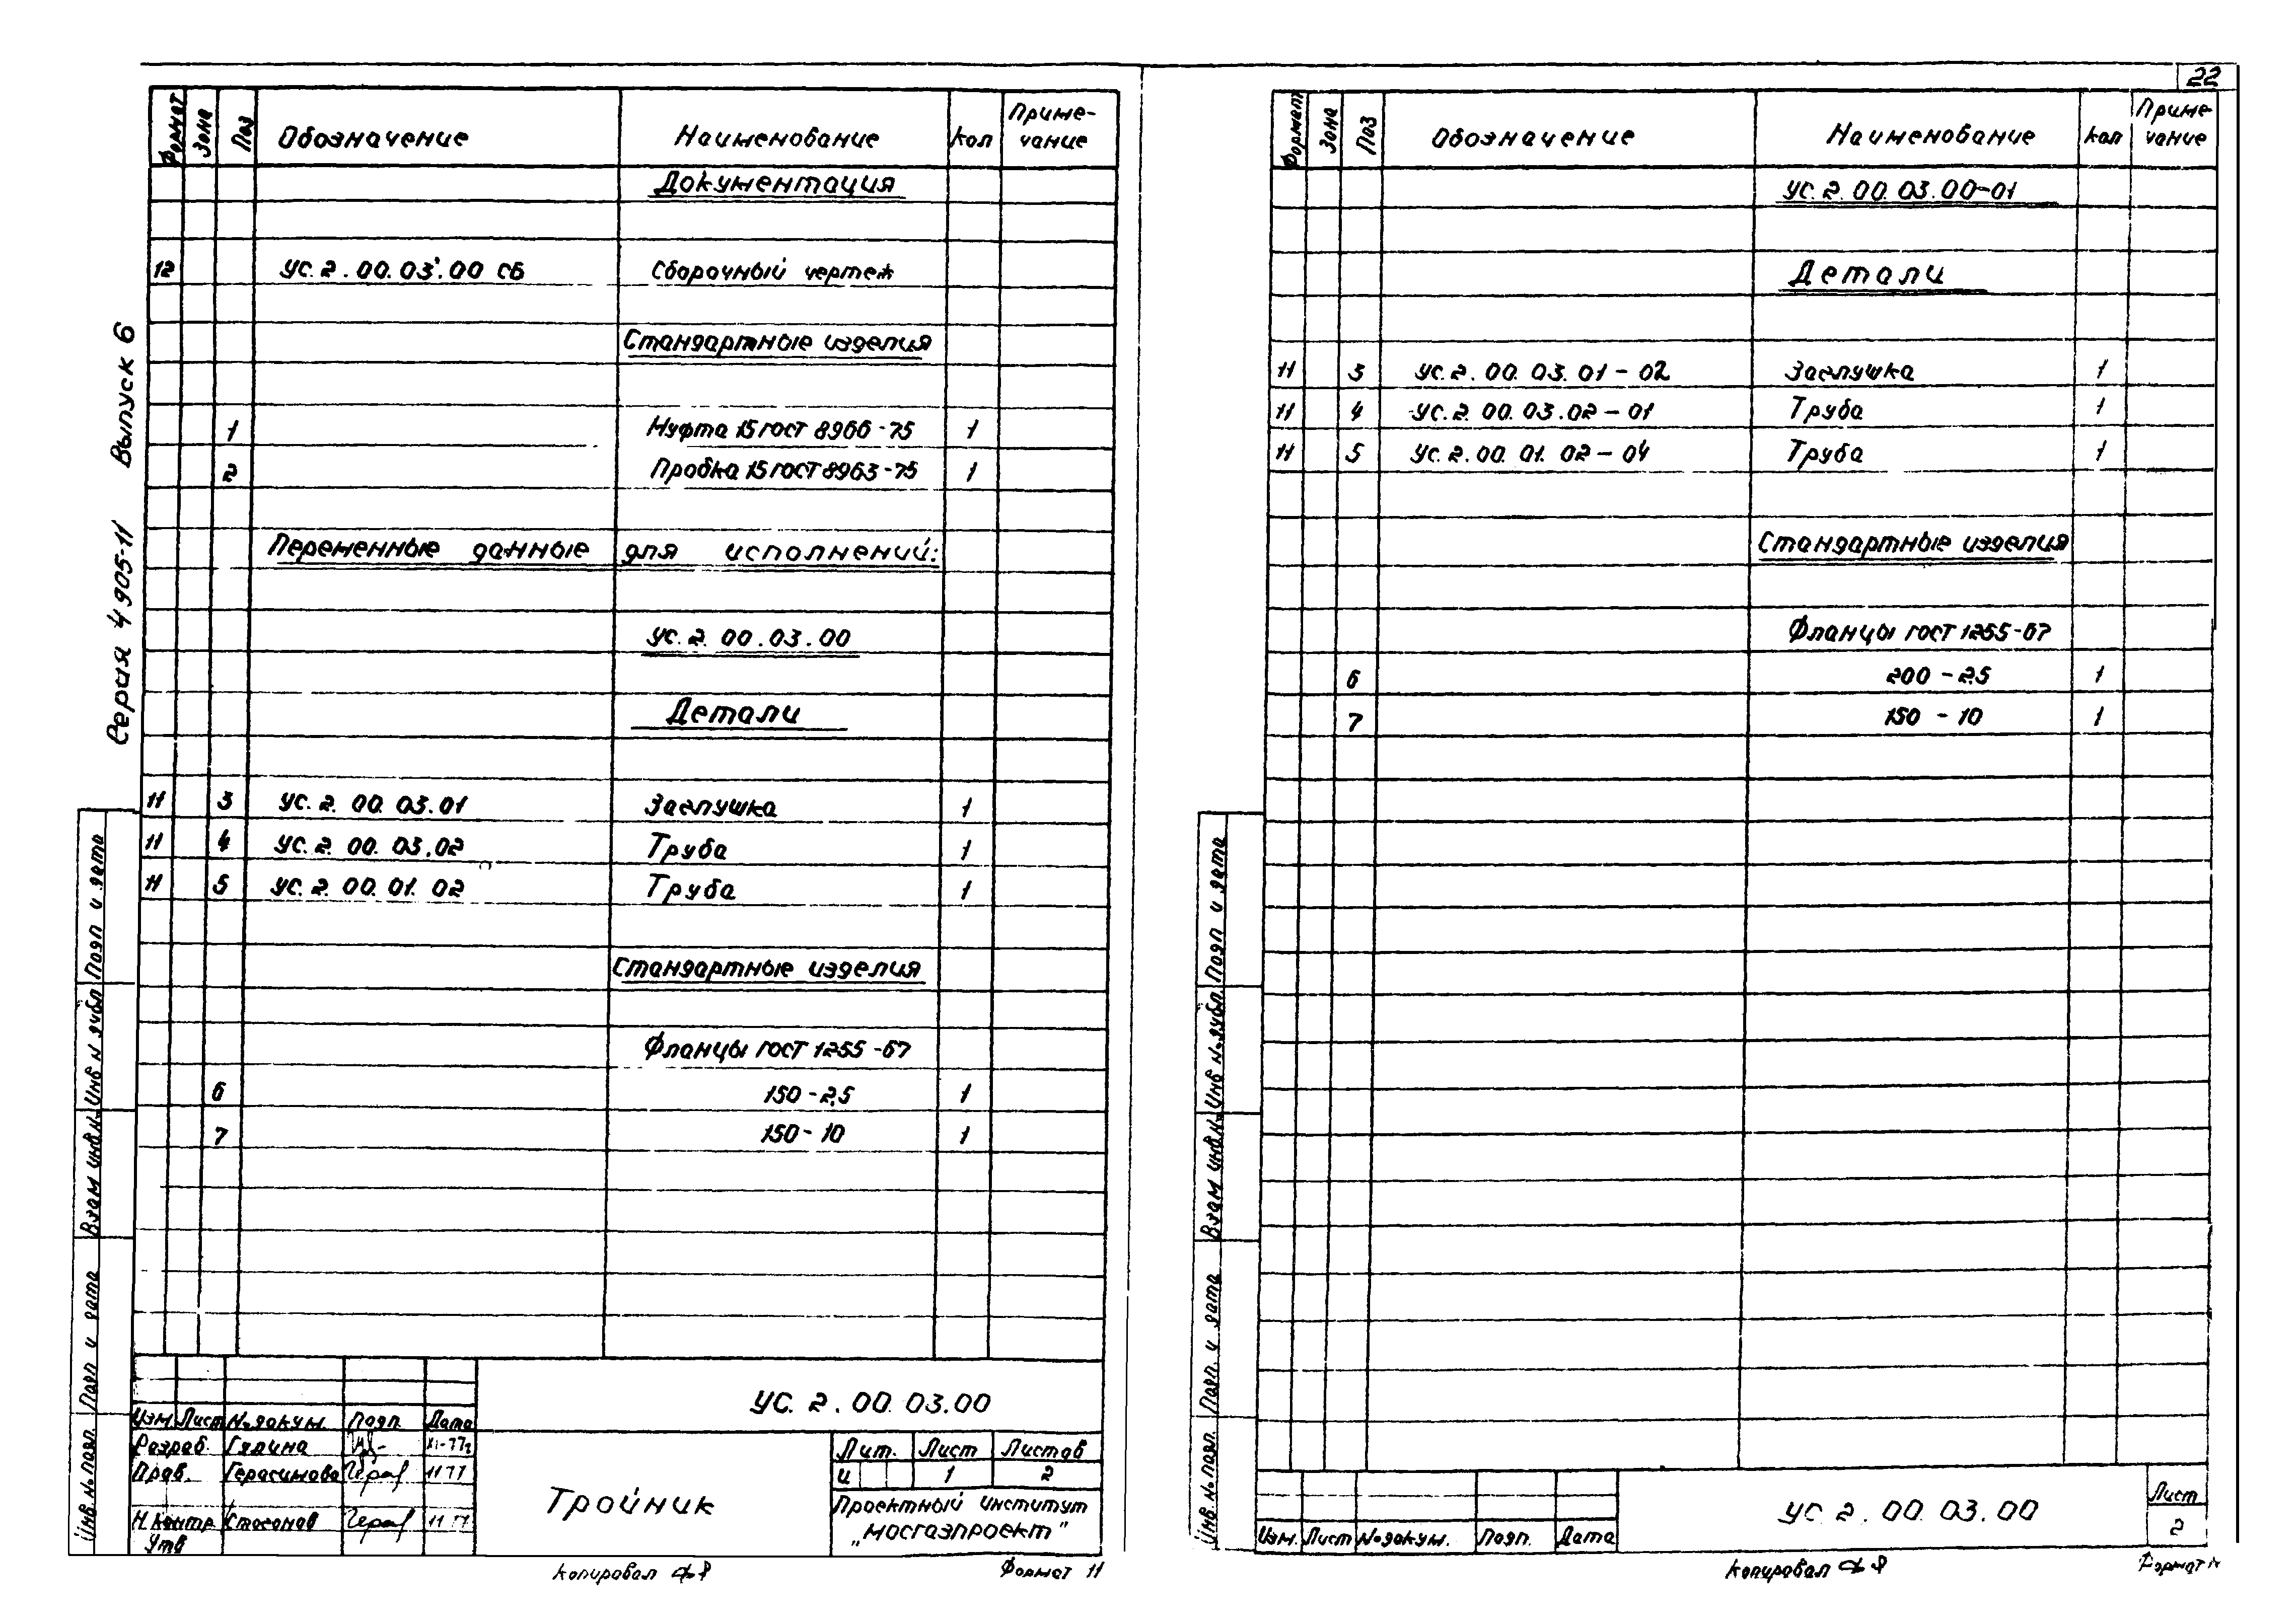 22
Серия 4 905-11 Выпуск 6
Формат Зона Поз Обозначение Наименование Кол Приме-чание
Документация
12 УС. 2. 00. 03. 00 СБ Сборочный чертеж
Стандартные изделия
1 Муфта 15 ГОСТ 8966-75 1
2 Пробка 15 ГОСТ 8963-75 1
Переменные данные для исполнений:
УС. 2. 00. 03. 00
Детали
11 3 УС. 2. 00. 03. 01 Заглушка 1
11 4 УС. 2. 00. 03. 02 Труба 1
11 5 УС. 2. 00. 01. 02 Труба 1
Стандартные изделия
Фланцы ГОСТ 1255-67
6 150-2,5 1
7 150-10 1
Инв. № подл. Подп и дата Взам инв.№ Инв № дубл. Подп и дата
УС. 2. 00. 03. 00
Изм. Лист № докум. Подп. Дата
Разраб. Гядина XI-77г
Пров. Герасимова 11 77
Н.Контр Стогонов 11 77
Утв
Тройник
Лит. Лист Листов
и 1 2
Проектный институт
„Мосгазпроект"
Копировал
Формат 11
Формат Зона Поз Обозначение Наименование Кол Приме-чание
УС. 2. 00. 03. 00-01
Детали
11 3 УС. 2. 00. 03. 01-02 Заглушка 1
11 4 УС. 2. 00. 03. 02-01 Труба 1
11 5 УС. 2. 00. 01. 02-04 Труба 1
Стандартные изделия
Фланцы ГОСТ 1255-67
6 200-2,5 1
7 150-10 1
Инв. № подл. Подп. и дата Взам инв.№ Инв № дубл. Подп и дата
Изм. Лист № докум. Подп. Дата
УС. 2. 00. 03. 00
Лист
2
Копировал
Формат 11